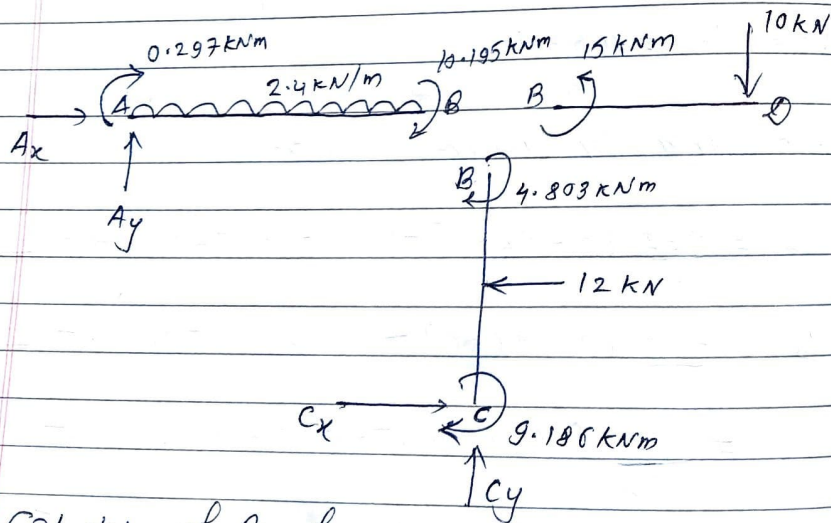 10 kN
0.297 kNm 10.195 kNm 15 kNm
2.4 kN/m
A B B D
Ax
Ay
B 4.803 kNm
12 kN
Cx C
9.186 kNm
Cy